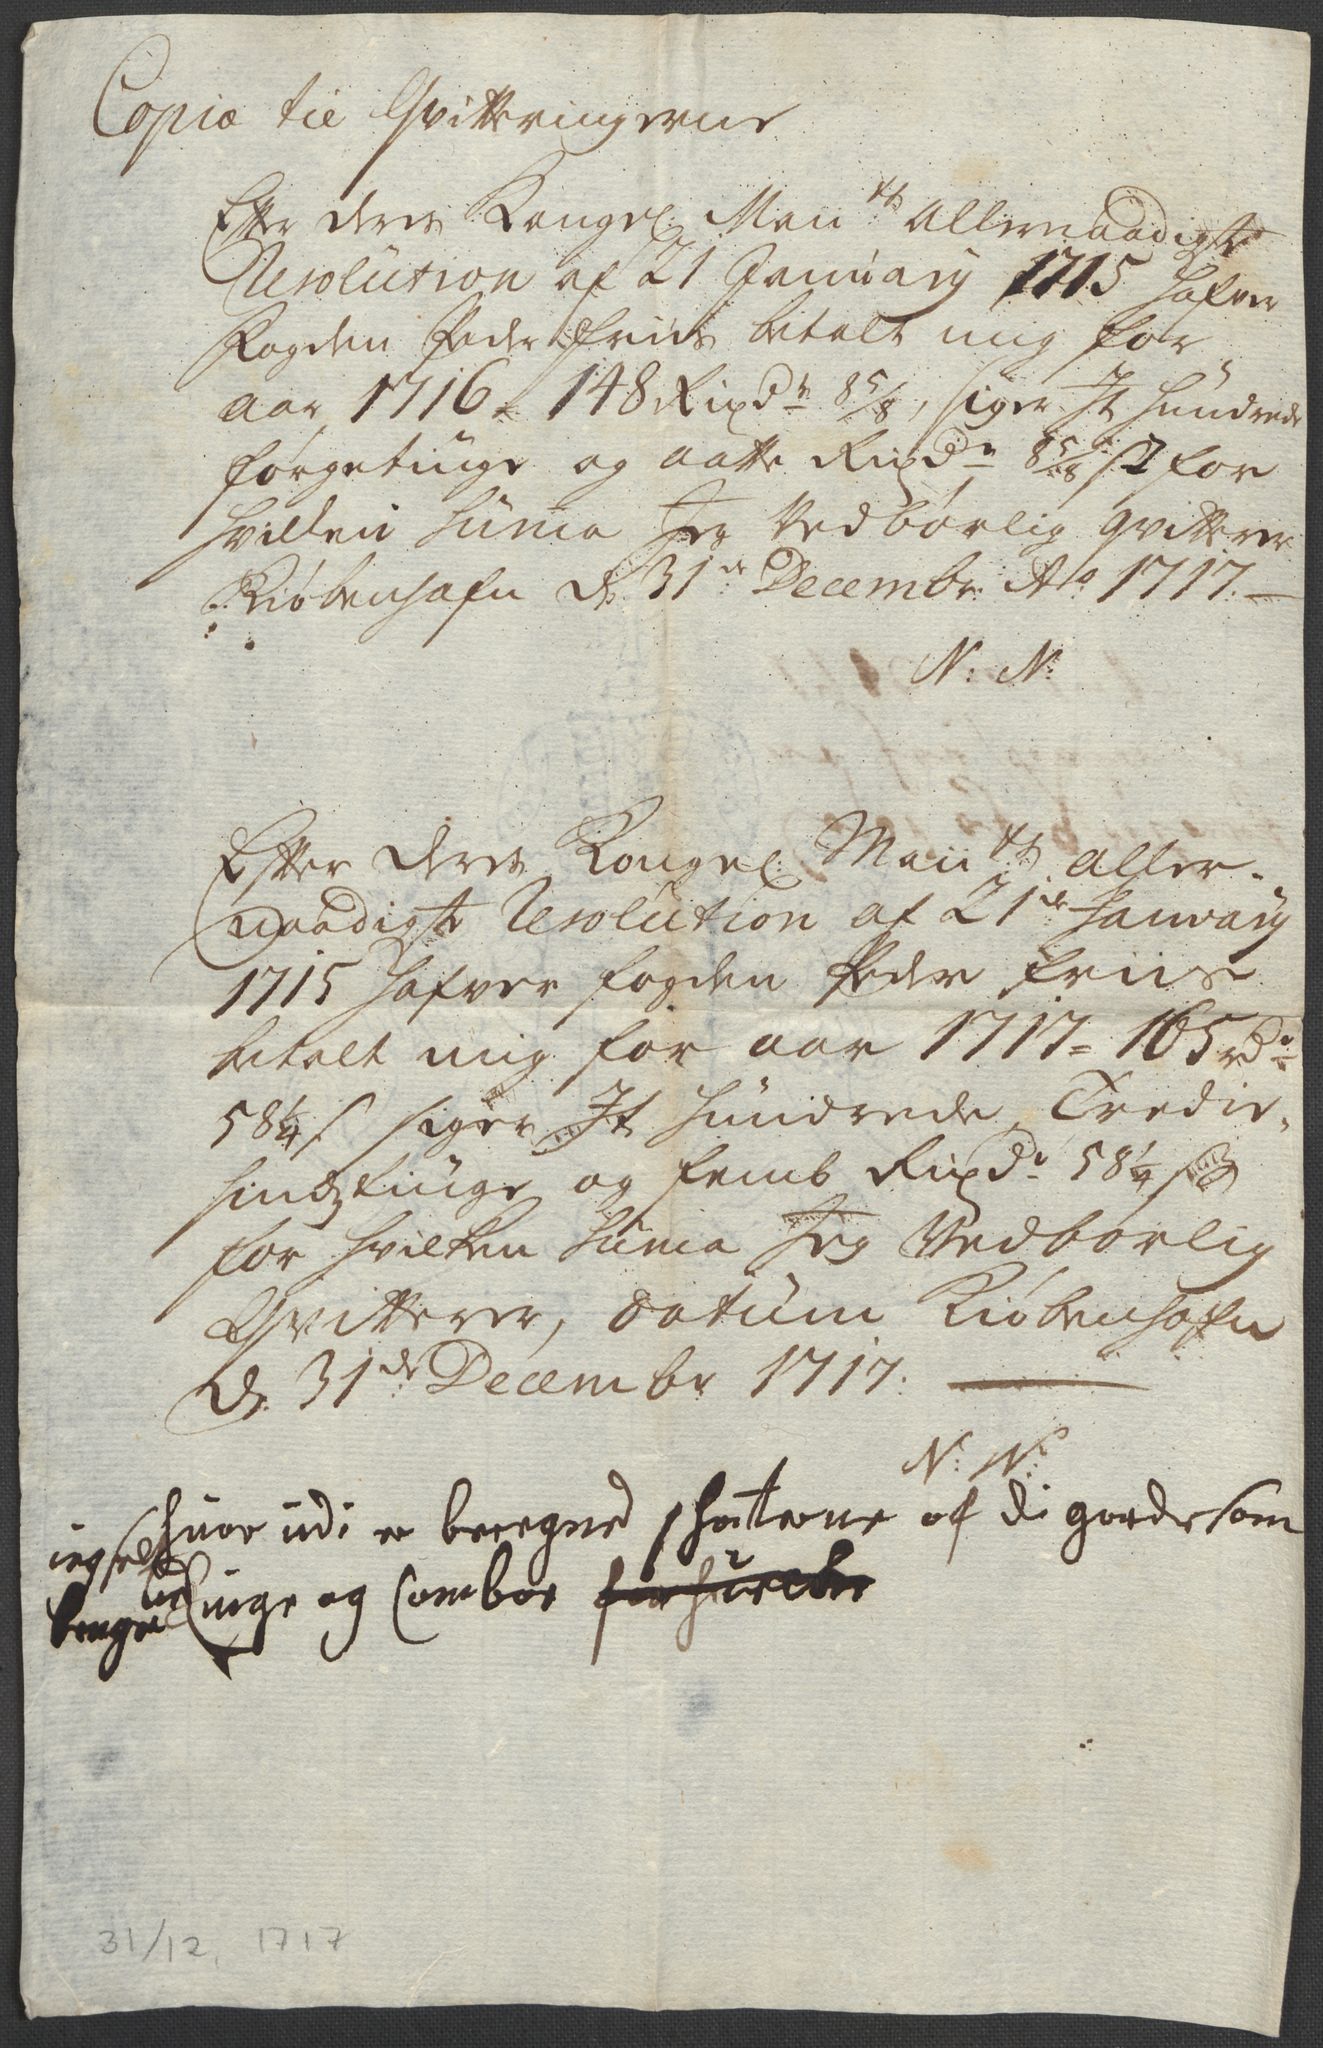 Copia til Qvitteringerne
Efter deres Kongel: May.ts allernaadigste
Resolution af 21 January 1715 hafver
Fogden Peder Friis betalt mig for
aar 1716 = 148 Rixdr 8 5/8, siger Et hundrede
førgetiuge og aatte Rixdr 8 5/8 s for
hvilken suma Jeg vedbørlig qvitterer
Kiøbenhafn d. 31de Decembr Ao 1717.
N: N:
Efter deres Kongel: May.ts aller-
naadigste Resolution af 21de January
1715 hafver fogden Peder Friis
betalt mig for aar 1717 = 165 rdr
58 1/4 s siger Et hundrede Tredie-
sindztiuge og femb Rixdr 58 1/4 s
for hvilken suma Jeg vedbørlig
Qvitterer, datum Kiøbenhafn
d. 31de Decembr 1717.
N: N:
huor udi er beregned schatterne af di gaarde som
ieg selv
til
bruger Linge og Combor
31/12, 1717